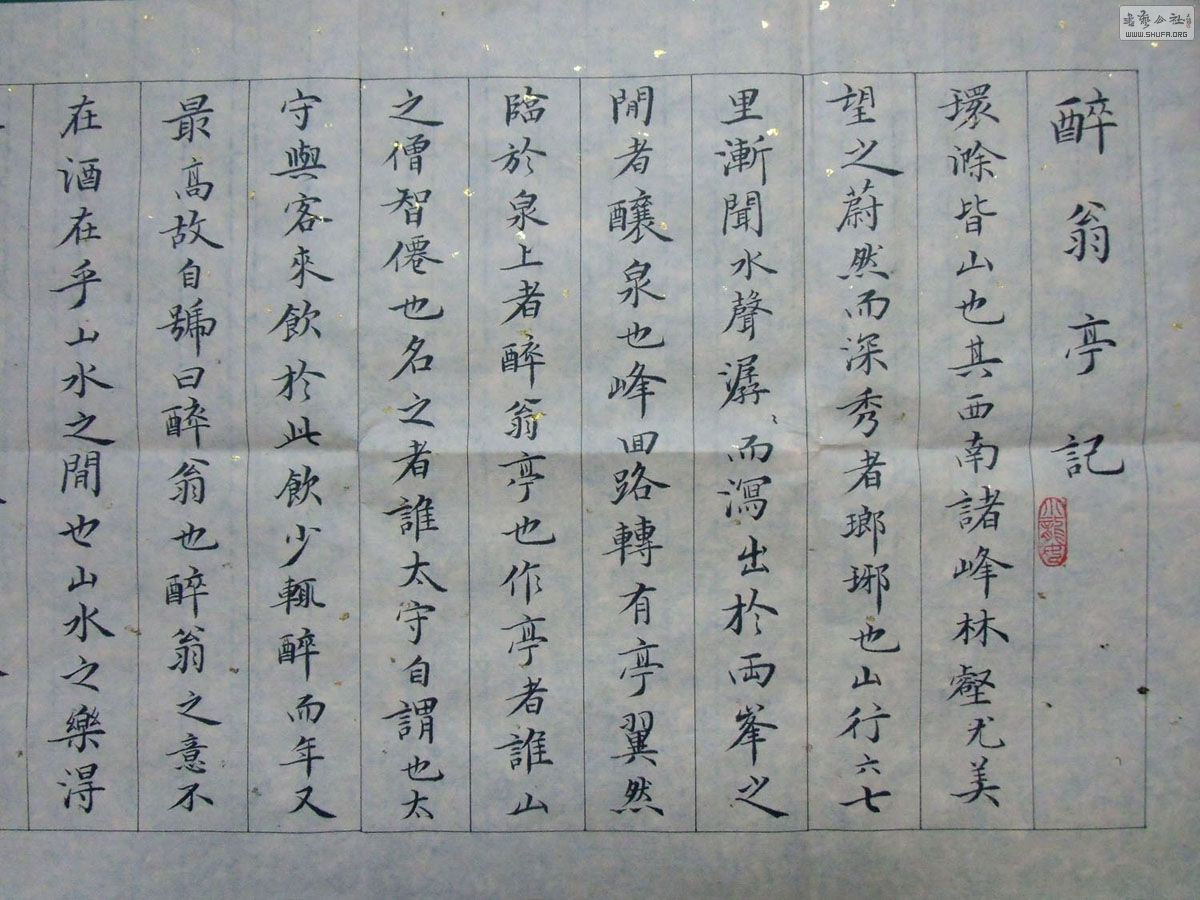 醉翁亭記
環滁皆山也其西南諸峰林壑尤美
望之蔚然而深秀者瑯琊也山行六七
里漸聞水聲潺〻而瀉出於兩峯之
閒者釀泉也峰回路轉有亭翼然
臨於泉上者醉翁亭也作亭者誰山
之僧智僊也名之者誰太守自謂也太
守與客來飲於此飲少輒醉而年又
最高故自號曰醉翁也醉翁之意不
在酒在乎山水之閒也山水之樂得
書藝公社
WWW.SHUFA.ORG